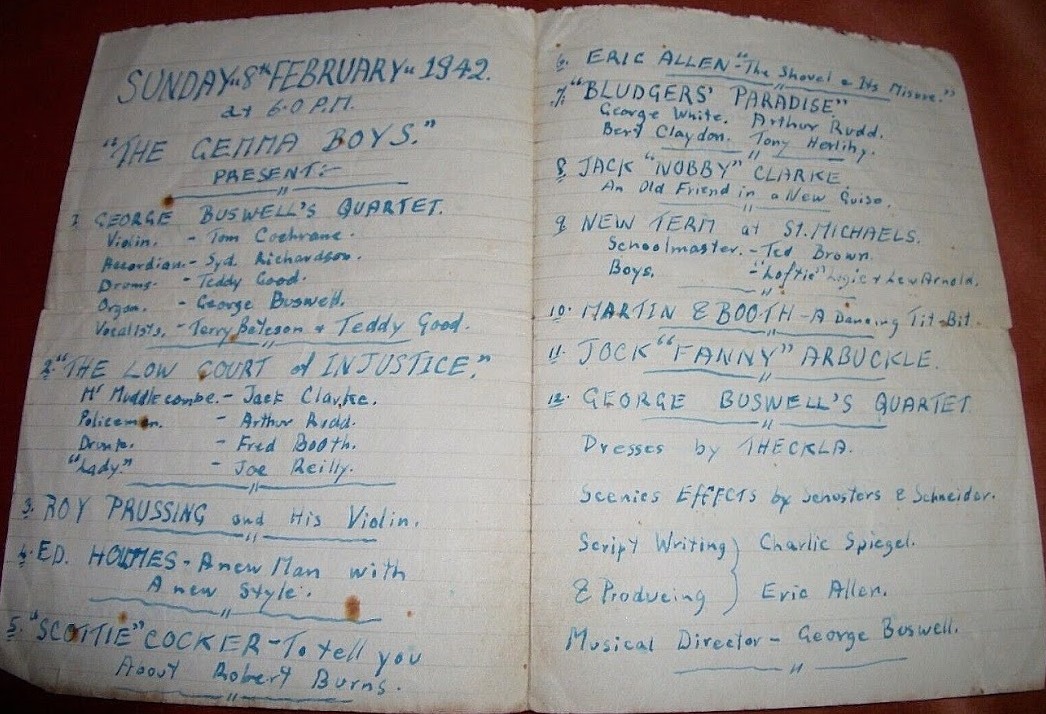 SUNDAY "8th FEBRUARY" 1942.
at 6.0 P.M.
"THE GEMMA BOYS."
PRESENT:-
1. GEORGE BUSWELL'S QUARTET.
Violin. - Tom Cochrane.
Accordian. - Syd. Richardson.
Drums. - Teddy Good.
Organ. - George Buswell.
Vocalists. - Terry Bateson + Teddy Good.
2. "THE LOW COURT of INJUSTICE."
Mr Muddlecombe. - Jack Clarke.
Policeman. - Arthur Rudd.
Drunk. - Fred Booth.
"Lady." - Joe Reilly.
3. ROY PRUSSING and His Violin.
4. ED. HOLMES - A new Man with
A new Style.
5. "SCOTTIE" COCKER - To tell you
About Robert Burns.
6. ERIC ALLEN - "The Shovel & Its Misuse."
7. "BLUDGERS' PARADISE"
George White. Arthur Rudd.
Bert Claydon. Tony Herlihy.
8. JACK "NOBBY" CLARKE.
An Old Friend in a New Guise.
9. NEW TERM at ST. MICHAELS.
Schoolmaster. - Ted Brown.
Boys. - "Loftie" Logie + Lew Arnold.
10. MARTIN & BOOTH - A Dancing Tit-Bit.
11. JOCK "FANNY" ARBUCKLE.
12. GEORGE BUSWELL'S QUARTET
Dresses by THECKLA.
Scenies EFFECTS by & Schneider.
Script Writing } Charlie Spiegel.
& Produeing } Eric Allen.
Musical Director - George Buswell.